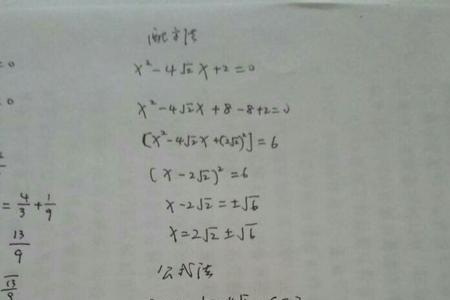 配方法
x²-4√2x+2=0
x²-4√2x+8-8+2=0
[x²-4√2x+(2√2)²]=6
(x-2√2)²=6
x-2√2=±√6
x=2√2±√6
公式法
=0
0
=4/3+1/9
13/9